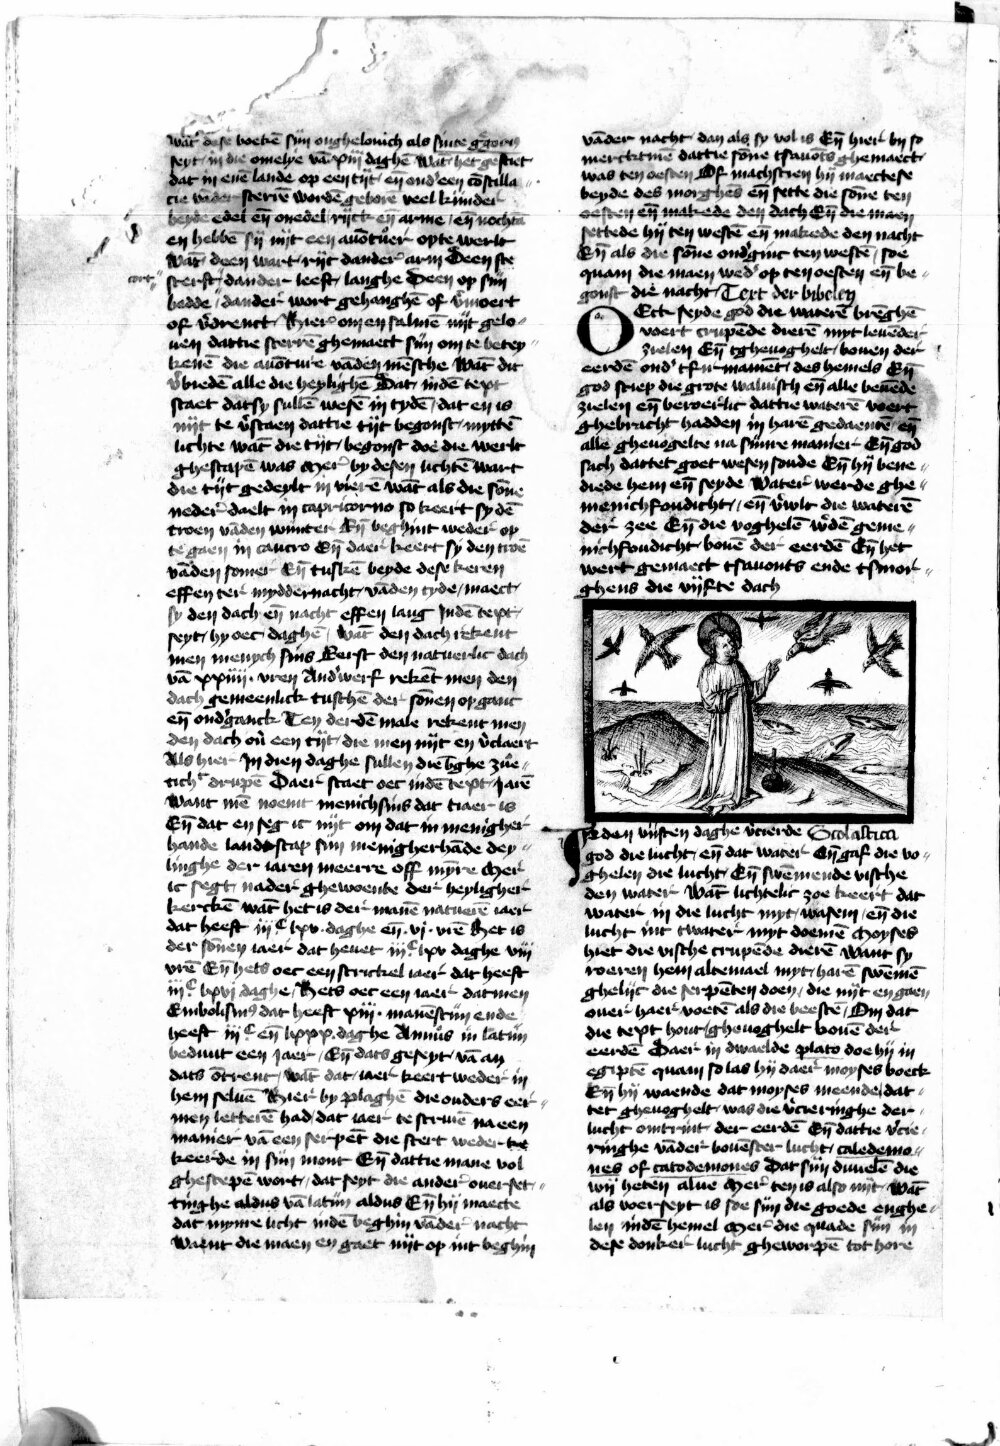 wāt dese boekē sijn onghelouich als sinte g̊gorius
seyt in die omelye vā xiii daghē Wāt het gesciet
dat in enē lande op een tijt eñ ond' een cōstilla
cie vāder sterrē wordē geborē veel kinder
beyde edel eñ onedel rijck en arme eñ nochtā
en hebbē sij nijt een auōtuer op te werlt
Wāt deen wart rijt dander arm Deen ste
sterft dander leeft langhe Deen op sijn
bedde dander wort gehanghē of v'moert
of v'drenct Hier om en salmē nijt gelo
uen dattie sterrē ghemaect sijn om te betey
kenē die auōture vāden mēsche Wāt dit
v'bieden alle die heylighē Dat indē text
staet dat sy sullē wesē in tydē dat en is
nijt te v'staen dattie tijt begonst mytten
lichte wāt die tijt begonst doe die werlt
ghescapē was Mer by desen lichtē wart
die tijt gedeylt in vierē wāt als die sōne
neder daelt in capricorno so keert sy dē
troen vāden winter Eñ beghint weder op
te gaen in cancro Eñ daer keert sy den troē
vāden somer Eñ tuskē beyde dese keren
effen ter myddernacht vāden tyde maect
sy den dach eñ nacht effen lang Indē text
seyt hy oec daghē wāt den dach rekent
men menych sins Eerst den natuerlic dach
vā xxiiii vren Andwerf rekēt men den
dach gemeenlick tusschē der sōnen opganc
eñ ond'ganck Ten derdē male rekent men
den dach om een tijt die men nijt en v'claert
Als hier In dien daghe sullen die b'ghe zue
ticht drupē Daer staet oec indē text Jarē
Want mē noemt menichsins dat tiaer is
Eñ dat en seg ic nijt om dat in menigher
hande landscap sijn menigherhāde dey
linghe der iaren meerre off mynre Mer
ic segt nader ghewoente der heyligher
kerckē wāt het is der manē natuerē iaer
dat heeft iii c lxv daghe eñ vi vrē Het is
der sōnen iaer dat heuet iii c lxv daghe viii
vrē Eñ hets oec een scrickel iaer dat heeft
iii c lxvi daghe Hets oec een iaer datmen
Embolismꝰ dat heeft xiii manēscijn ende
heeft iii c eñ lxxx daghe Annus in latijn
beduut een Jaer Eñ dats geseyt vā an
dats ōtrent wāt dat iaer keert weder in
hem seluē Hier by plaghē die ouders eer
men letterē had dat iaer te scruiē na een
manier vā een serpēt die stert weder
keerde in sijn mont Eñ dattie mane vol
ghescepe wort dat seyt die ander ouerset
tinghe aldus vā latijn aldus Eñ hij maecte
dat mynre licht indē beghin vāder nacht
Waent die maen en gaet nijt op int beghin
vāder nacht dan als sy vol is Eñ hier bij so
mercktmē dattie sōne tsauōts ghemaect
was ten oesten Of machscien hij maectese
beyde des morghēs eñ sette die sōne ten
oesten eñ makede den dach Eñ die maen
settede hij ten westē eñ makede den nacht
Eñ als die sōne ond'ginc ten westē soe
quam die maen wed' op ten oesten eñ be
gonst die nacht Text der bibelen
OEck seyde god die waterē brēghē
voert crupēde dierē myt leueder
zielen Eñ tgheuoghelt bouen der
eerdē ond' tfirmamēt des hemels Eñ
god sciep die grote waluisch eñ alle beuēde
zielen eñ beroerlic dattie waterē voert
ghebracht hadden in harē gedaentē eñ
alle gheuogelte na sijnre manier Eñ god
sach dattet goet wesen soude Eñ hij bene
diede hem eñ seyde Water werde ghe
menichfoudicht eñ v'wlt die waterē
der zee Eñ die voghelē w'dē geme
nichfoudicht bouē der eerdē Eñ het
wert gemaect tsauonts ende tsmor
ghens die vijfte dach
IN den vijften daghe v'cierde Scolastica
god die lucht eñ dat water Eñ gaf die vo
ghelen die lucht Eñ swēmende vische
den water Wāt lichtelic zoe keert dat
water in die lucht myt wasem eñ die
lucht int twater myt doemē Moyses
hiet die vische crupēde dierē Want sy
roeren hem altemael myt harē swēmē
ghelijc die serpēten doen die nijt en gaen
ouer haer voetē als die beestē Om dat
die text hout gheuoghelt bouē der
eerdē Daer in dwaelde plato doe hij in
egiptē quam so las hij daer moyses boeck
Eñ hij waende dat moyses meende dat
tet gheuoghelt was die v'cieringhe der
lucht omtrint der eerdē Eñ dattie v'cie
ringhe vāder bouēster lucht caledemo
nes of catodemones Dat sijn duuelē die
wij heten aluē Mer ten is also nijt Wāt
als voerseyt is soe sijn die goede enghe
len indē hemel Mer die quade sijn in
dese donker lucht gheworpē tot hore